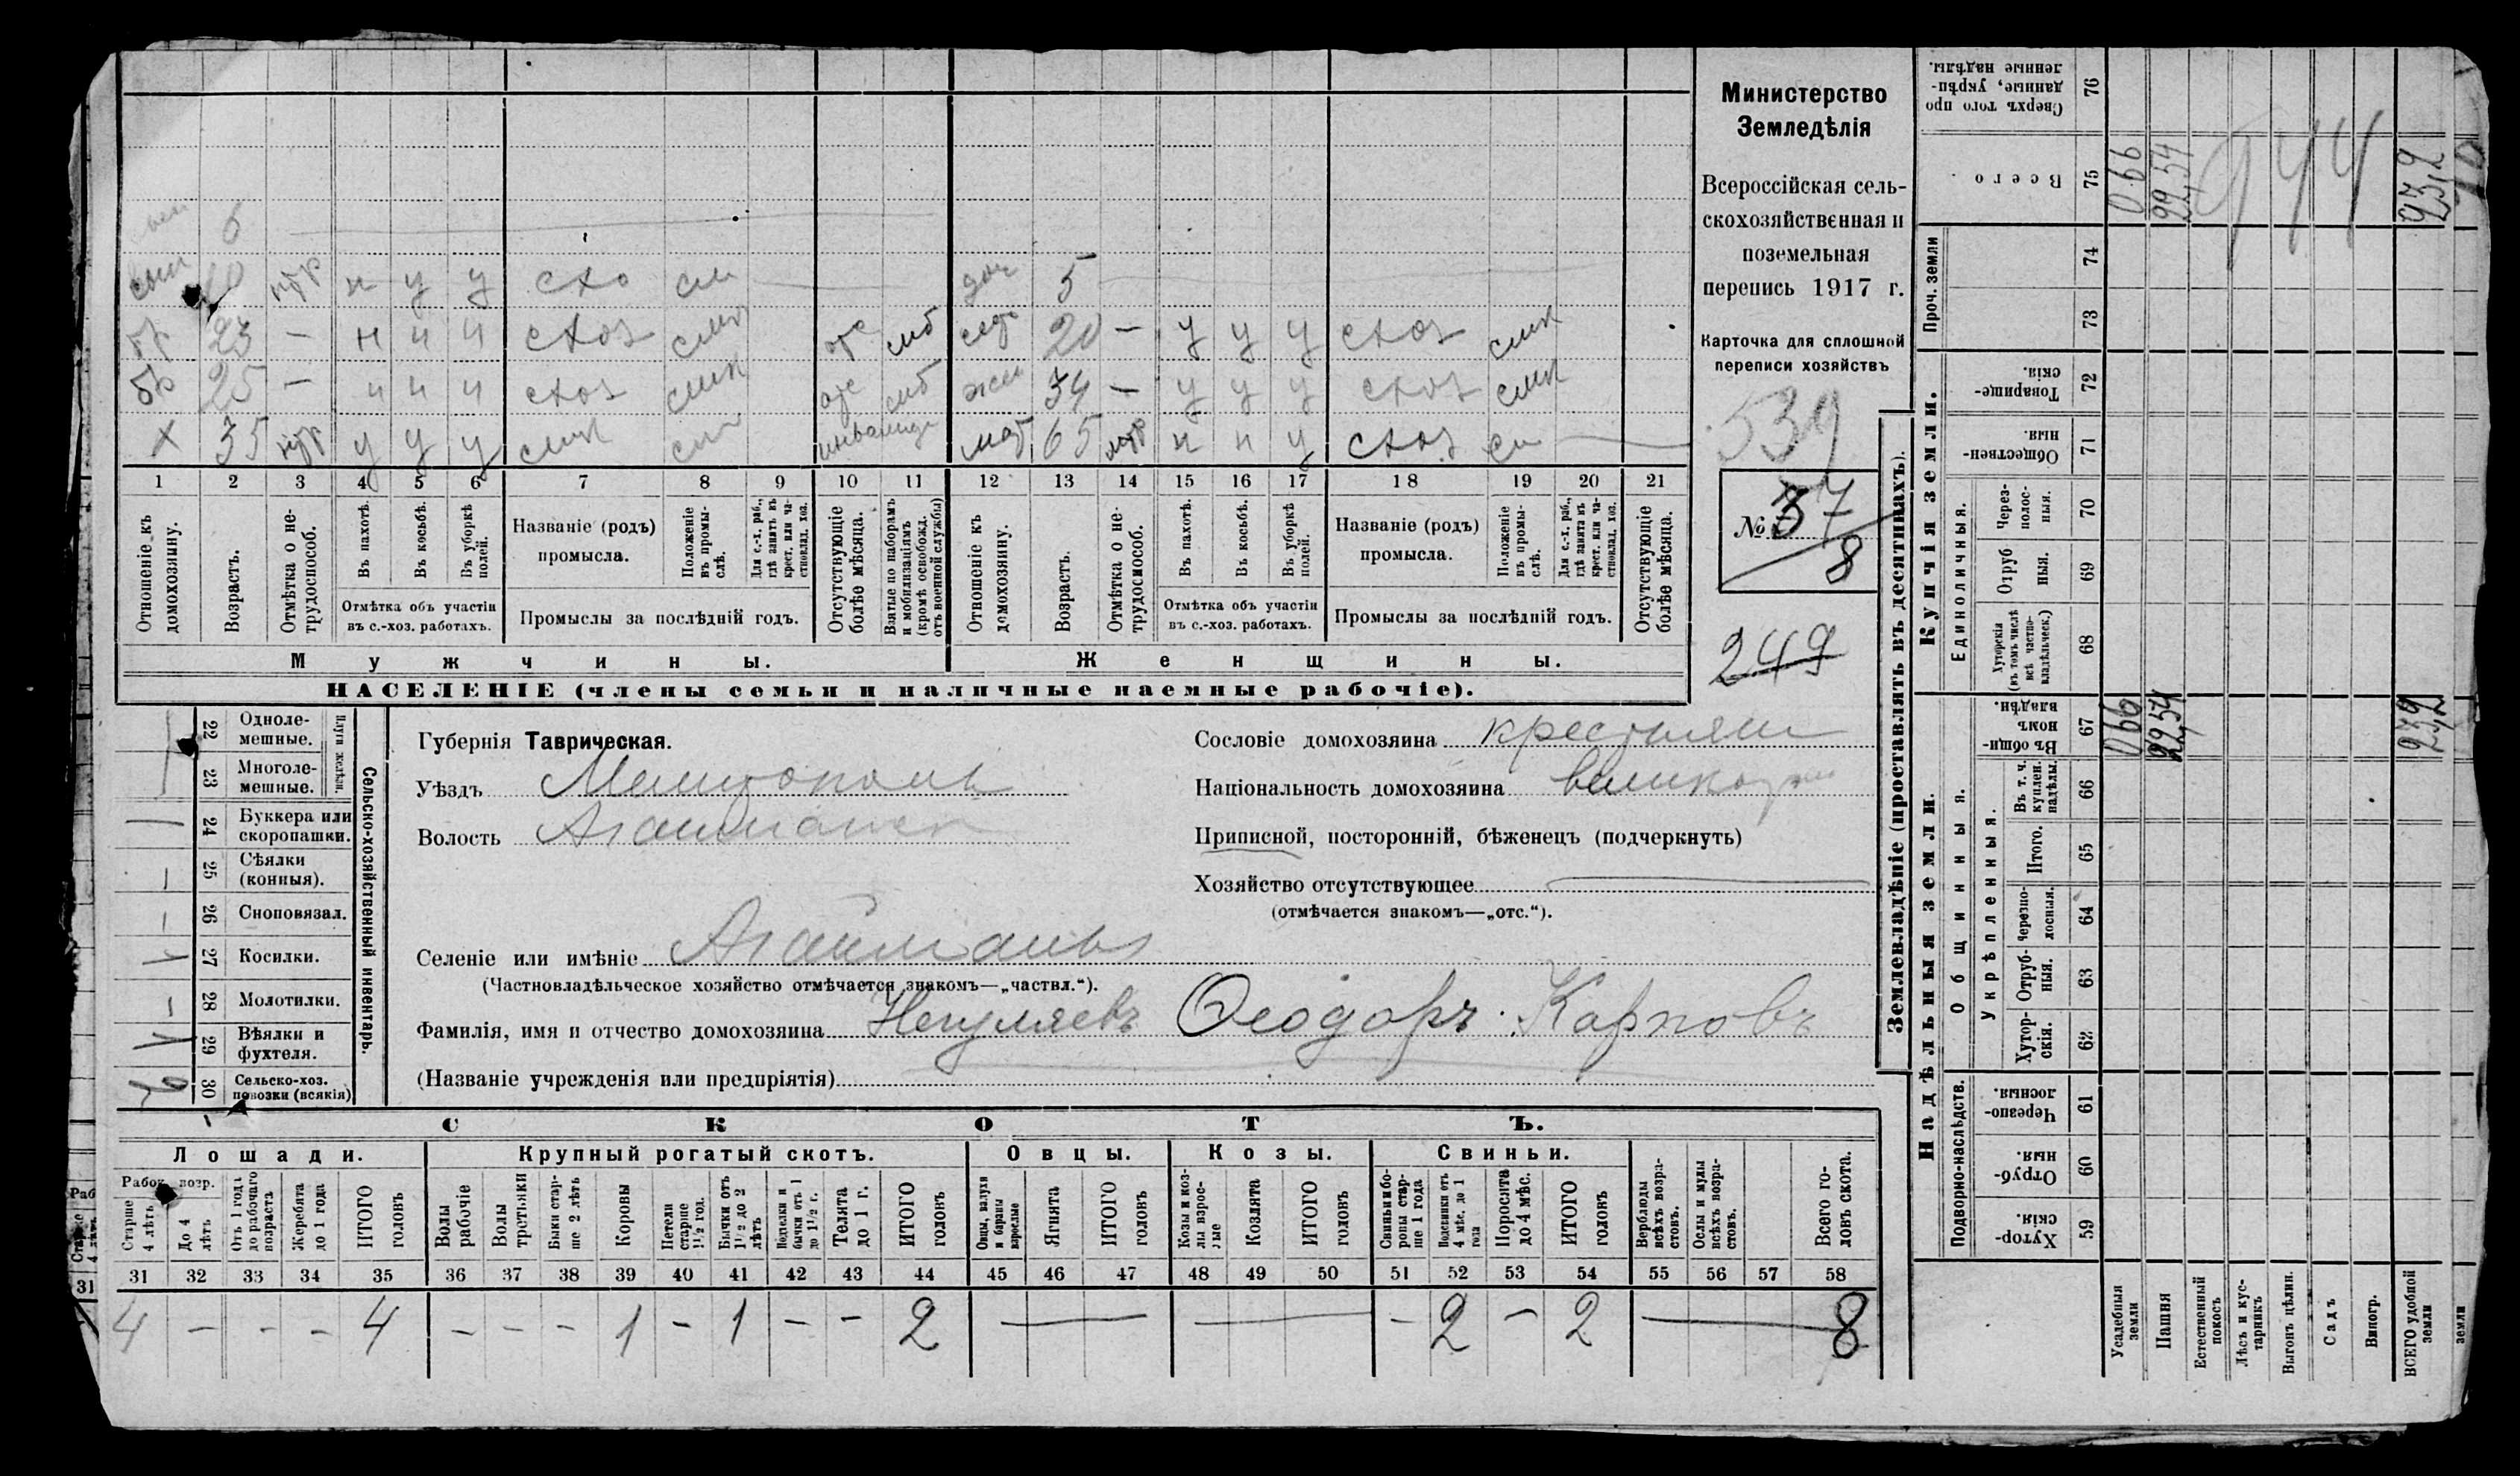 Министерство
Земледѣлія
Всероссійская сель-
скохозяйственная и
поземельная
перепись 1917 г.
Карточка для сплошной
переписи хозяйствъ
539
№ 37
8
249
6
сын 10 нтр н у у схо
доч 5
бр 23 — н н н схоз
20 — у у у схоз
бр 25 — н н н схоз
жен 34 — у у у схоз
х 35 нтр у у у
инвалид
мат 65 нтр н н у схоз
1 2 3 4 5 6 7 8 9 10 11 12 13 14 15 16 17 18 19 20 21
Отношеніе къ домохозяину.
Возрастъ.
Отмѣтка о не-трудоспособ.
Въ пахотѣ.
Въ косьбѣ.
Въ уборкѣ полей.
Отмѣтка объ участіи
въ с.-хоз. работахъ.
Названіе (родъ)
промысла.
Положеніе въ промы-слѣ.
Для с.-х. раб., гдѣ занятъ въ крест. или ча-стновлад. хоз.
Промыслы за послѣдній годъ.
Отсутствующіе болѣе мѣсяца.
Взятые по наборамъ и мобилизаціямъ (кромѣ освобожд. отъ военной службы)
Отношеніе къ домохозяину.
Возрастъ.
Отмѣтка о не-трудоспособ.
Въ пахотѣ.
Въ косьбѣ.
Въ уборкѣ полей.
Отмѣтка объ участіи
въ с.-хоз. работахъ.
Названіе (родъ)
промысла.
Положеніе въ промы-слѣ.
Для с.-х. раб., гдѣ занята въ крест. или ча-стновлад. хоз.
Промыслы за послѣдній годъ.
Отсутствующіе болѣе мѣсяца.
Мужчины.
Женщины.
НАСЕЛЕНІЕ (члены семьи и наличные наемные рабочіе).
Сельско-хозяйственный инвентарь.
Плуги желѣзн.
22 Одноле-мешные.
23 Многоле-мешные.
24 Буккера или скоропашки.
25 Сѣялки (конныя).
26 Сноповязал.
27 Косилки.
28 Молотилки.
29 Вѣялки и фухтеля.
30 Сельско-хоз. повозки (всякія)
Губернія Таврическая.
Уѣздъ Мелитополь
Волость Агайманск
Сословіе домохозяина крестьянин
Національность домохозяина великор
Приписной, посторонній, бѣженецъ (подчеркнуть)
Хозяйство отсутствующее
(отмѣчается знакомъ—„отс.“).
Селеніе или имѣніе Агайманъ
(Частновладѣльческое хозяйство отмѣчается знакомъ—„частвл.“).
Фамилія, имя и отчество домохозяина Негуляевъ Ѳеодоръ Карповъ
(Названіе учрежденія или предпріятія)
СКОТЪ.
Лошади.
Крупный рогатый скотъ.
Овцы.
Козы.
Свиньи.
Рабоч. возр.
Старше 4 лѣтъ
До 4 лѣтъ
Отъ 1 года до рабочаго возраста
Жеребята до 1 года
ИТОГО головъ
Волы рабочіе
Волы гостьяки
Быки стар-ше 2 лѣтъ
Коровы
Нетели старше 1½ год.
Бычки отъ 1½ до 2 лѣтъ
Подтелки и бычки отъ 1 до 1½ г.
Телята до 1 г.
ИТОГО головъ
Овцы, валухи и бараны взрослые
Ягнята
ИТОГО головъ
Козы и коз-лы взрос-лые
Козлята
ИТОГО головъ
Свиньи и бо-ровы стар-ше 1 года
Подсвинки отъ 4 мѣс. до 1 года
Поросята до 4 мѣс.
ИТОГО головъ
Верблюды всѣхъ возра-стовъ.
Ослы и мулы всѣхъ возра-стовъ.
Всего го-ловъ скота.
31 32 33 34 35 36 37 38 39 40 41 42 43 44 45 46 47 48 49 50 51 52 53 54 55 56 57 58
4 — — — 4 — — — 1 — 1 — — 2 — — — 2 — 2 — 8
Землевладѣніе (проставлять въ десятинахъ).
Надѣльныя земли.
Подворно-наслѣдств.
Хутор-скія. 59
Отруб-ныя. 60
Черезпо-лосныя. 61
Общинныя.
Укрѣпленныя.
Хутор-скія. 62
Отруб-ныя. 63
Черезпо-лосныя. 64
Итого. 65
Въ т. ч. куплен. надѣлы. 66
Въ общин-номъ владѣн. 67
Купчія земли.
Единоличныя.
Хуторскія (въ томъ числѣ всѣ частно-владѣльческ.) 68
Отруб ныя. 69
Через-полос-ныя. 70
Обществен-ныя. 71
Товарище-скія. 72
Проч. земли
73 74
Всего. 75
Сверхъ того про данные, укрѣп-ленные надѣлы. 76
Усадебныя земли
0.66
0.66
Пашня
22,54
22,54
Естественный покосъ
Лѣсъ и кус-тарникъ
Выгонъ цѣлин.
Садъ
Виногр.
ВСЕГО удобной земли
23,2
23,2
944
земли
Раб
Старше 4 лѣтъ
31